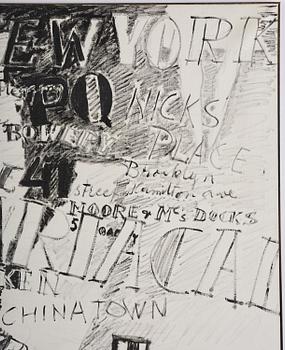 EW YORK
PO NICKS
BOWERY PLACE.
4 Brooklyn
street Hamilton ave
MOORE & Mc's DOCKS
5
KEN
CHINATOWN